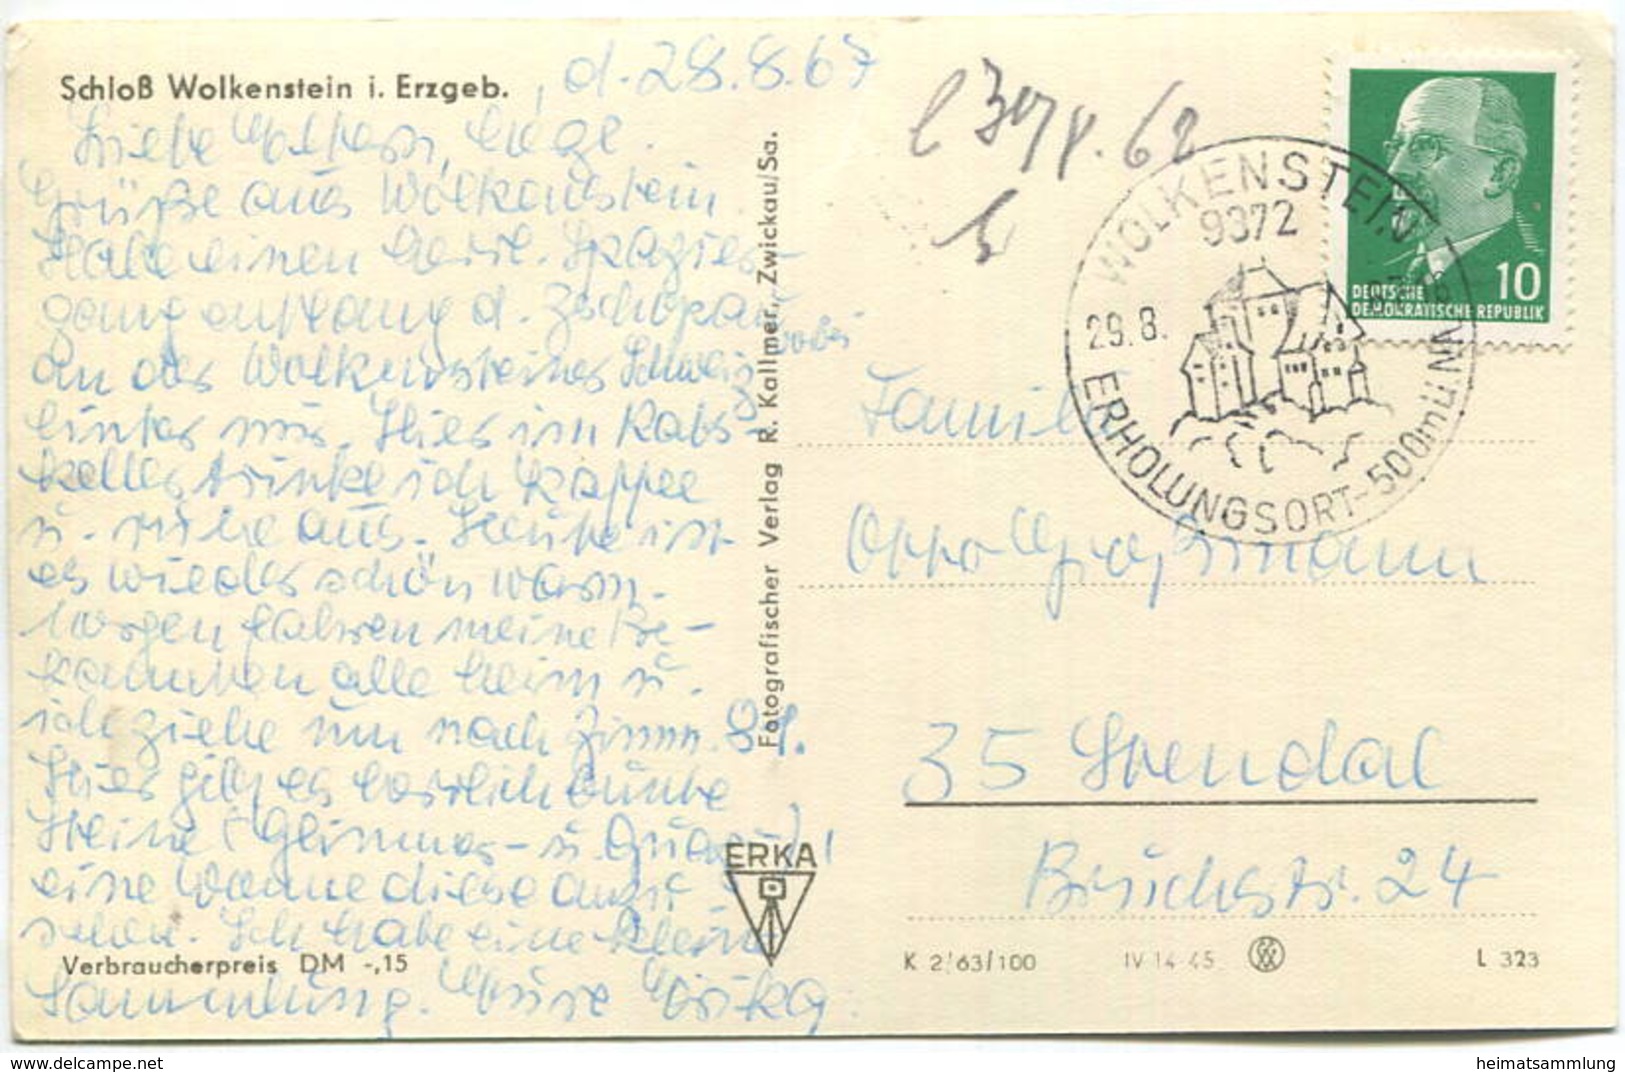 Schloß Wolkenstein i. Erzgeb.
, d. 28.8.67
Liebe
Grüße aus Wolkenstein
Habe einen herrl. Spazier-
gang entlang d. Zschopau
an der Wolkensteiner Schweiz
hinter mir. Hier im Rats-
keller trinke ich Kaffee
u. ruhe aus. Heute ist
es wieder schön warm.
Morgen fahren meine Be-
kannten alle heim u.
ich ziehe um nach Zimm. 81.
Hier gibt es herrlich bunte
Steine (Glimmer- u.
eine Wonne diese anzu-
sehen. Ich habe eine kleine
Verbraucherpreis DM -,15
Sammlung. Eure
Fotografischer Verlag R. Kallmer, Zwickau/Sa.
ERKA
62
WOLKENSTEIN
9372
29.8.
ERHOLUNGSORT-500mü NN
10
DEUTSCHE
DEMOKRATISCHE REPUBLIK
Familie
Otto Graßmann
35 Stendal
Bruchstr. 24
K 2/63/100
IV 14 45
L 323
www.delcampe.net
heimatsammlung